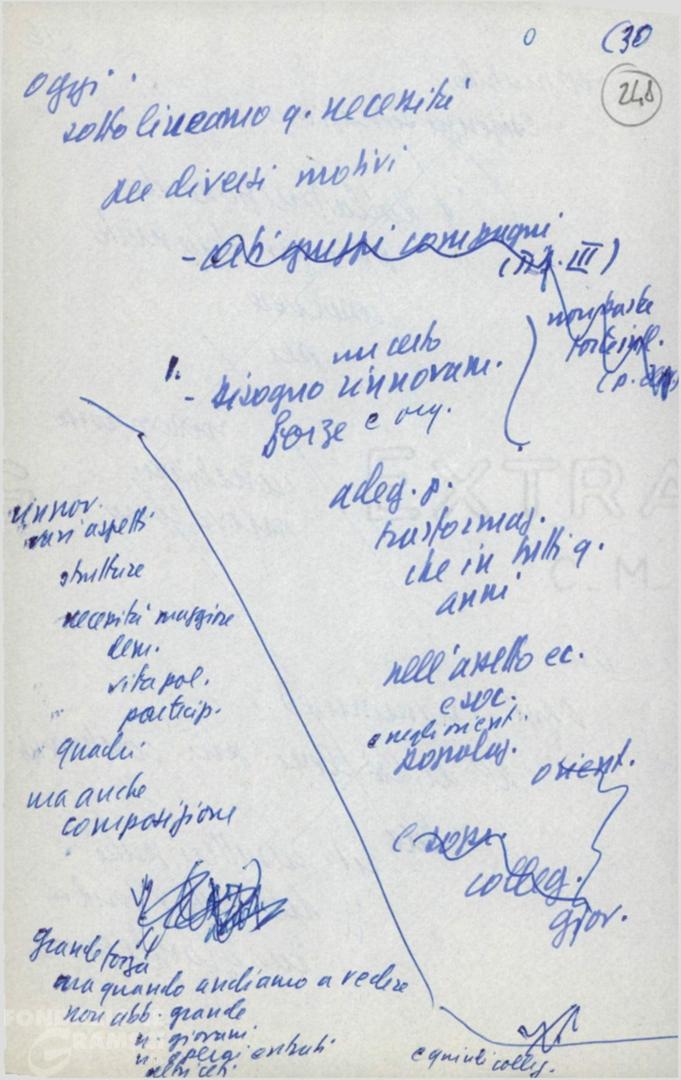 0 (30
248
oggi.
sottolineamo q. necessità
per diversi motivi
- altri gruppi compagni
(Tip. III)
non basta
1.
un certo
- bisogno rinnovam.
forze e org.
(p.
adeg. p.
trasformaz.
che in tutti q.
anni
nell'assetto ec.
e soc.
e negli orient.
popolaz.
orient.
e sopr.
colleg.
giov.
rinnov.
vari aspetti
strutture
necessità maggiore
dem.
vita pol.
particip.
quadri
ma anche
composizione
grande forza
ma quando andiamo a vedere
non abb. grande
n. giovani.
n. operai entrati
altri ceti.
e quindi colleg.
EXTRA
C.M.
FONDAZIONE
GRAMSCI